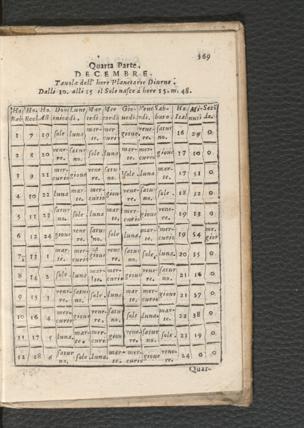 369
Quarta Parte.
DECEMBRE.
Tavola dell' hore Planetarie Diurne.
Dalli 10. alli 15 il Sole nasce à hore 15. m. 48.
1 7 19 sole luna mar- mer- giove vene- satur- 16 29 0
te. curio re. no.
2 8 20 vene- satur- sole luna mar- mer- giove 17 10 0
re. no. te. curio
3 9 21 mer- giove vene- satur- sole luna mar- 17 51 0
curio re. no. te.
4 10 22 luna mar- mer- giove vene- satur- sole 18 32 0
te. curio re. no.
5 11 23 satur- sole luna mar- mer- giove vene- 19 13 0
no. te. curio re.
6 12 24 giove vene- satur- sole luna mar- mer- 19 54
re. no. te. curio
7 1 mar- mer- giove vene- satur- sole luna 20 35 0
te. curio re. no.
8 14 2 sole luna mar- mer- giove vene- satur- 21 16 0
te. curio re. no.
9 15 3 vene- satur- sole luna mar- mer- giove 21 57 0
re. no. te. curio
10 16 4 mer- giove vene- satur- sole luna mar- 22 38 0
curio re. no. te.
11 17 5 luna mar- mer- giove vene- satur- sole 23 19 0
te. curio re. no.
12 18 6 satur- sole luna mar- mer- giove vene- 24 0 0
no. te. curio re.
Quar-